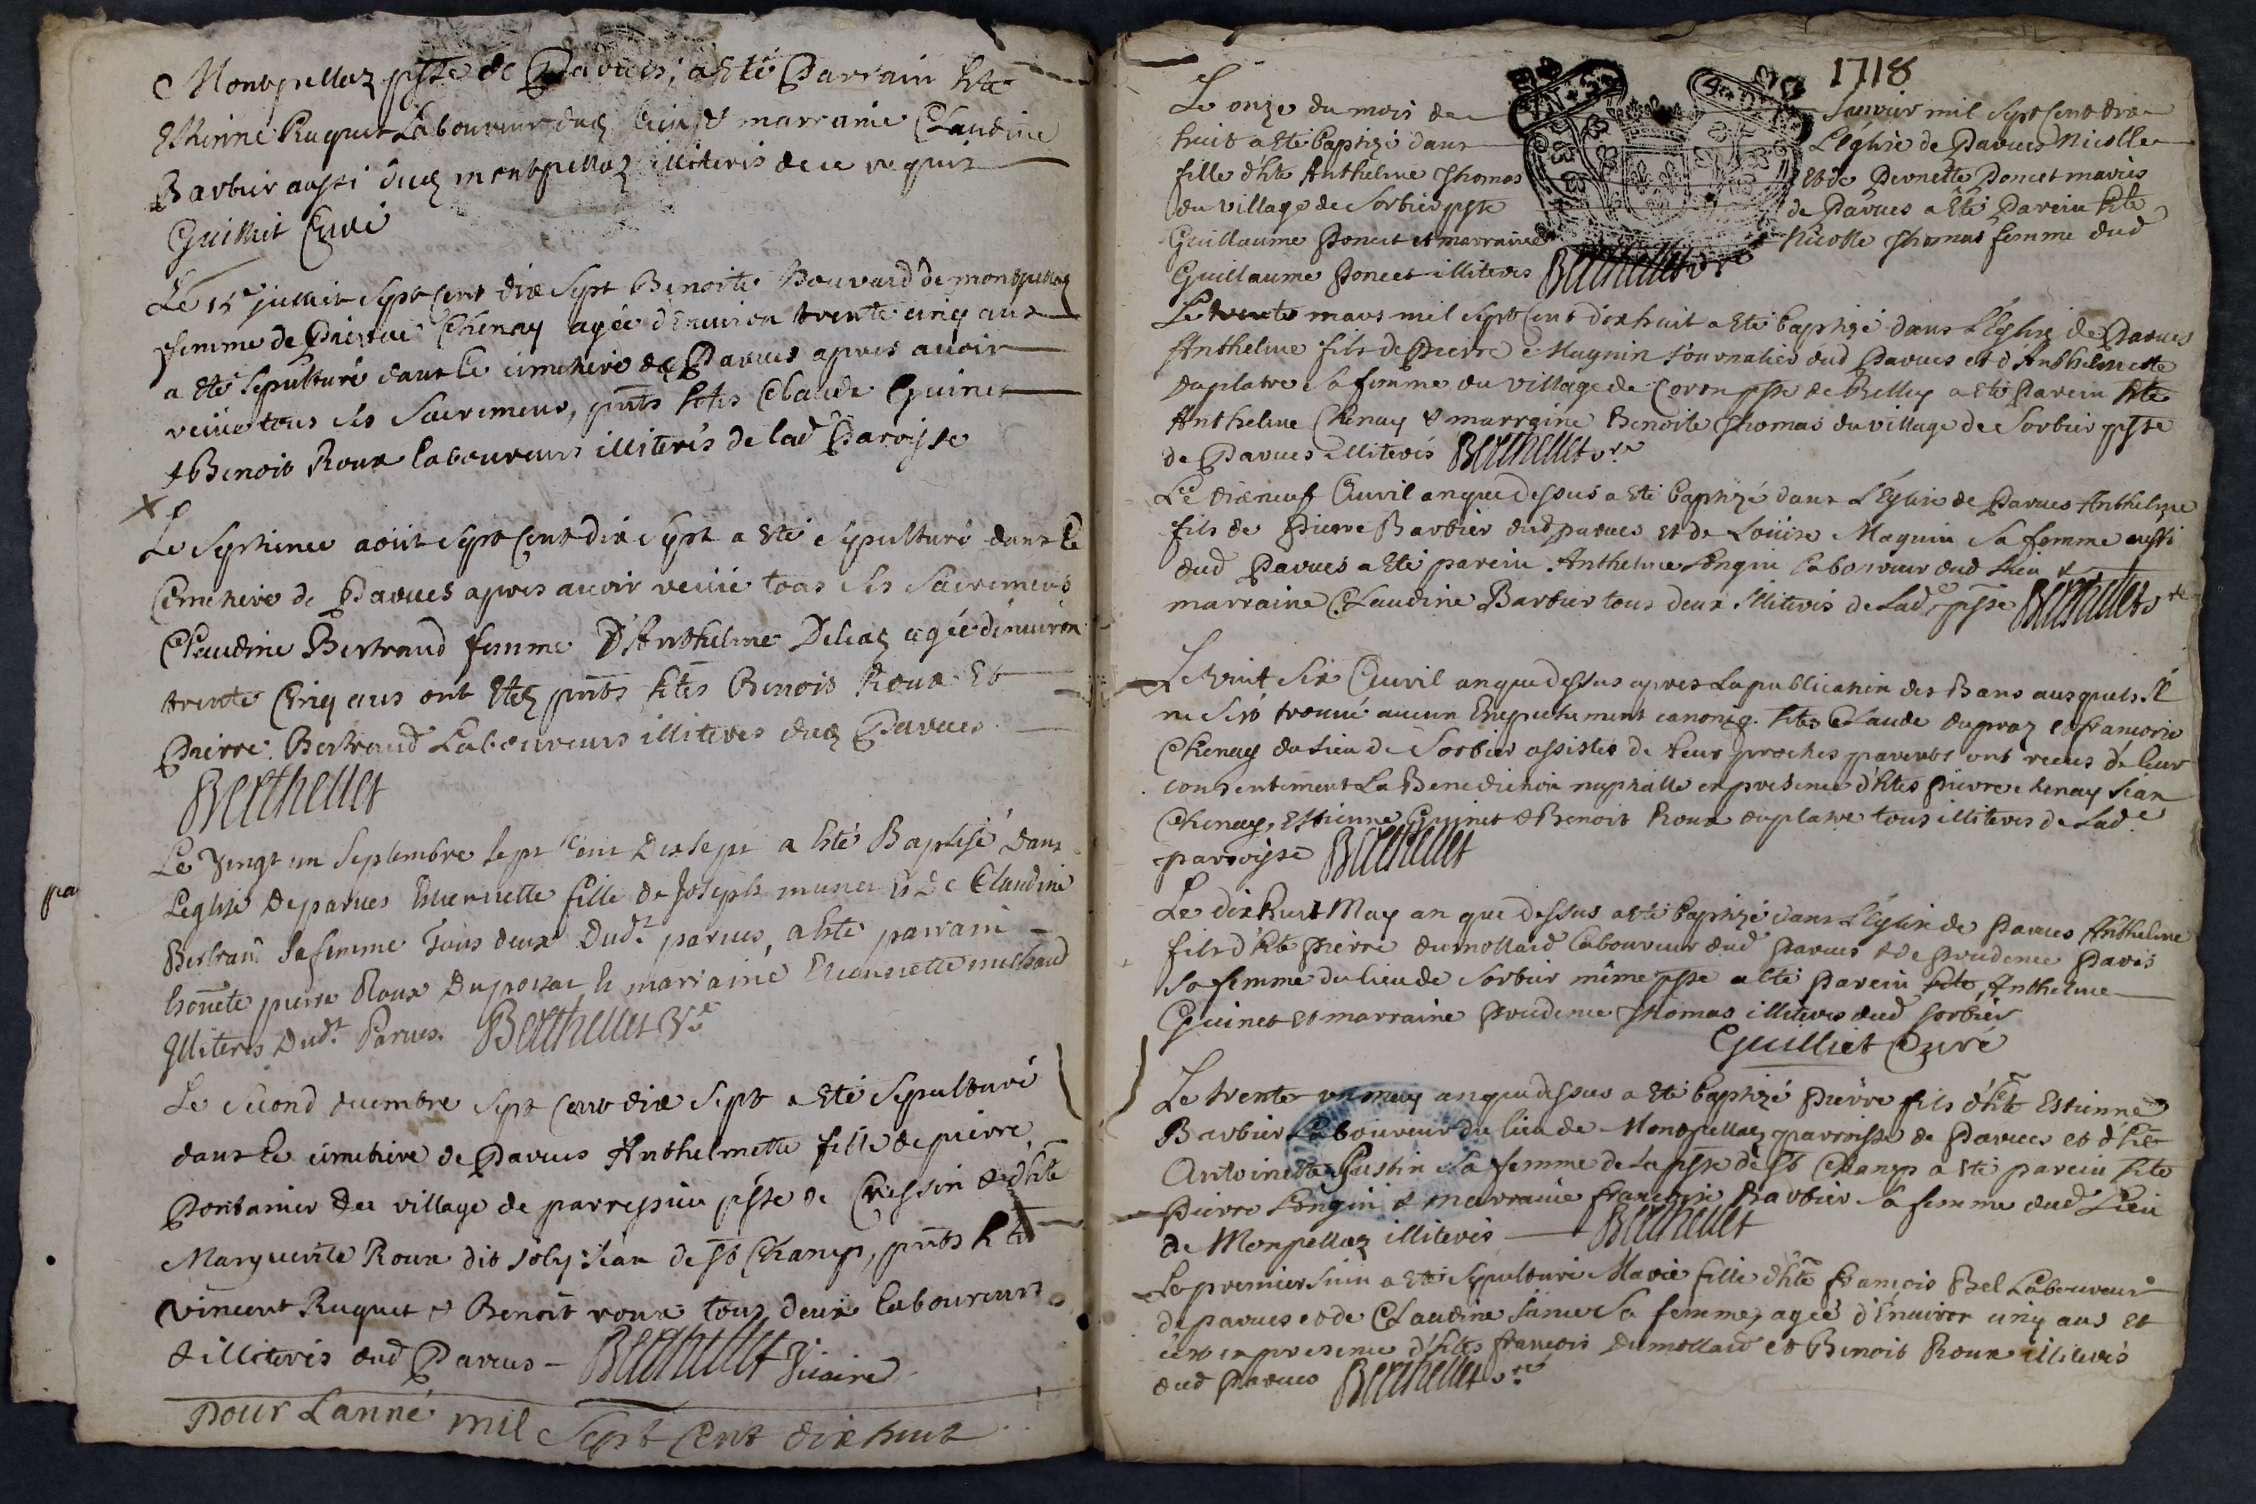 Montpellaz psse de Parves, a Eté Parrain hte
Ethienne Ruquet Laboureur dud lieu & marraine Claudine
Barbier aussi dud montpellaz illiterés de ce requis
Guilliet Curé
Le 15e juillet sept cent dixsept Benoite Bouvard de montpellaz
femme de Pierre Chenay agée d'Environ trente cinq ans
a Eté Sepulturé dans le cimetiere de Parves apres avoir
receue tous ses Sacremens, pnts htes Claude Guinet
& Benoit Roux laboureurs illiterés de lad Paroisse
Le septieme aoüt sept cent dix sept a Eté sepulturé dans le
Cemetiere de Parves apres avoir receüe tous ses Sacremens
Claudine Bertrand femme D'Anthelme Deleaz agée d'environ
trente Cinq ans ont Etez pnts htes Benoit Roux Et
Pierre Bertrand Laboureurs illiteres dud Parves
Berthellet
Le Vingt un Septembre Sept Cent Dixsept a Esté Baptisé Dans
Leglise De parves Estiennette fille de Joseph munet Et De Claudine
Bertrand Sa femme Tous deux Dudt parves, a Esté parrain
honnete pierre Roux et marraine Etiennette michaud
Illiteres Dudt Parves. Berthellet Vre
Le second decembre sept cent dix sept a Eté Sepulturé
dans le cimetiere de Parves Anthelmette fille de pierre
Pontanier du village de parressieu psse de Cressin & d'hte
Marguerite Roux dit Joly Jean de St Champ, pnts hte
Vincent Ruquet & Benoit roux tous deux laboureurs
& illiterés dud Parves - Berthellet Vicaire
pour Lanné mil Sept Cent dix huit
pa
1718
Le onze du mois de Janvier mil sept cent dix
huit a Eté baptizé dans L'église de Parves Nicolle
fille d'hte Anthelme Thomas et de Pernette Poncet mariés
du village de Sorbier psse de Parves a Eté Parein hte
Guillaume Poncet et marraine Nicolle Thomas femme dud
Guillaume Poncet illiteres Berthellet vre
Le trente mars mil sept Cent dixhuit a Eté baptizé dans L'Eglise de Parves
Anthelme fils de Pierre Magnin Journalier dud Parves et d'Anthelmette
Duplatre Sa femme du village de Coron psse de Belley a Eté Parein hte
Anthelme Chenay & marraine Benoite Thomas du village de Sorbier psse
de Parves illiterés Berthellet vre
Le dixneuf Avril an que dessus a Eté baptizé dans L'Eglise de Parves Anthelme
fils de Pierre Barbier dud parves et de Loüise Magnin Sa femme aussi
dud Parves a Eté parein Anthelme Longin laboureur dud Lieu &
marraine Claudine Barbier tous deux illiterés de Lade psse Berthellet vre
Le Vint Six Avril an que dessus apres La publication des Bans ausquels Il
ne s'est trouvé aucun Empechement canoniq. htes Claude dupraz et francoise
Chenay du Lieu de Sorbier assistés de leur proches parents ont receus de leur
consentement La Benediction nuptialle en presence d'htes pierre chenay Jean
Chenay, Estienne Guinet & Benoit Roux duplatre tous illiteres de Lade
parroisse Berthellet
Le dixhuit May an que dessus a Eté baptizé dans L'Eglise de Parves Anthelme
fils d'hte Pierre dumollard laboureur dud Parves & de prudence Paris
Sa femme du lieu de Sorbier même psse a Eté Parein hte Anthelme
Guinet et marraine Prudence Thomas illiteres dud Sorbier
Guilliet Curé
Le trente un may an que dessus a Eté baptizé Pierre fils d'hte Estienne
Barbier Laboureur du lieu de Montpellaz parroisse de Parves et d'hte
Antoinette Gustin Sa femme de La psse de St Champ a Eté parein hte
Pierre Longin & marraine francoise Barbier Sa femme dud Lieu
de Monpellaz illiterés Berthellet
Le premier Juin a Eté Sepulturé Marie fille d'hte françois Bel Laboureur
de parves et de Claudine Sa femme, agée d'Environ cinq ans et
c'est en presence d'htes françois Dumollard et Benoit Roux illiterés
dud Parves Berthellet vre